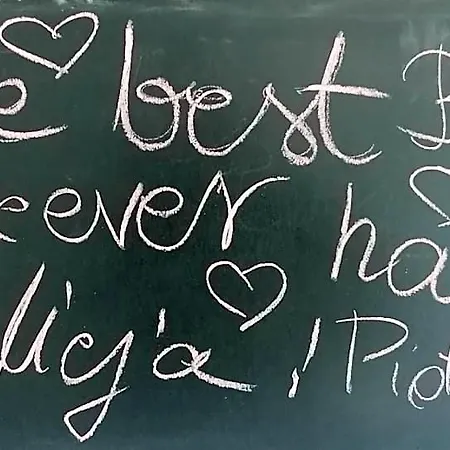 e best B
eever ha
licja ! Piot